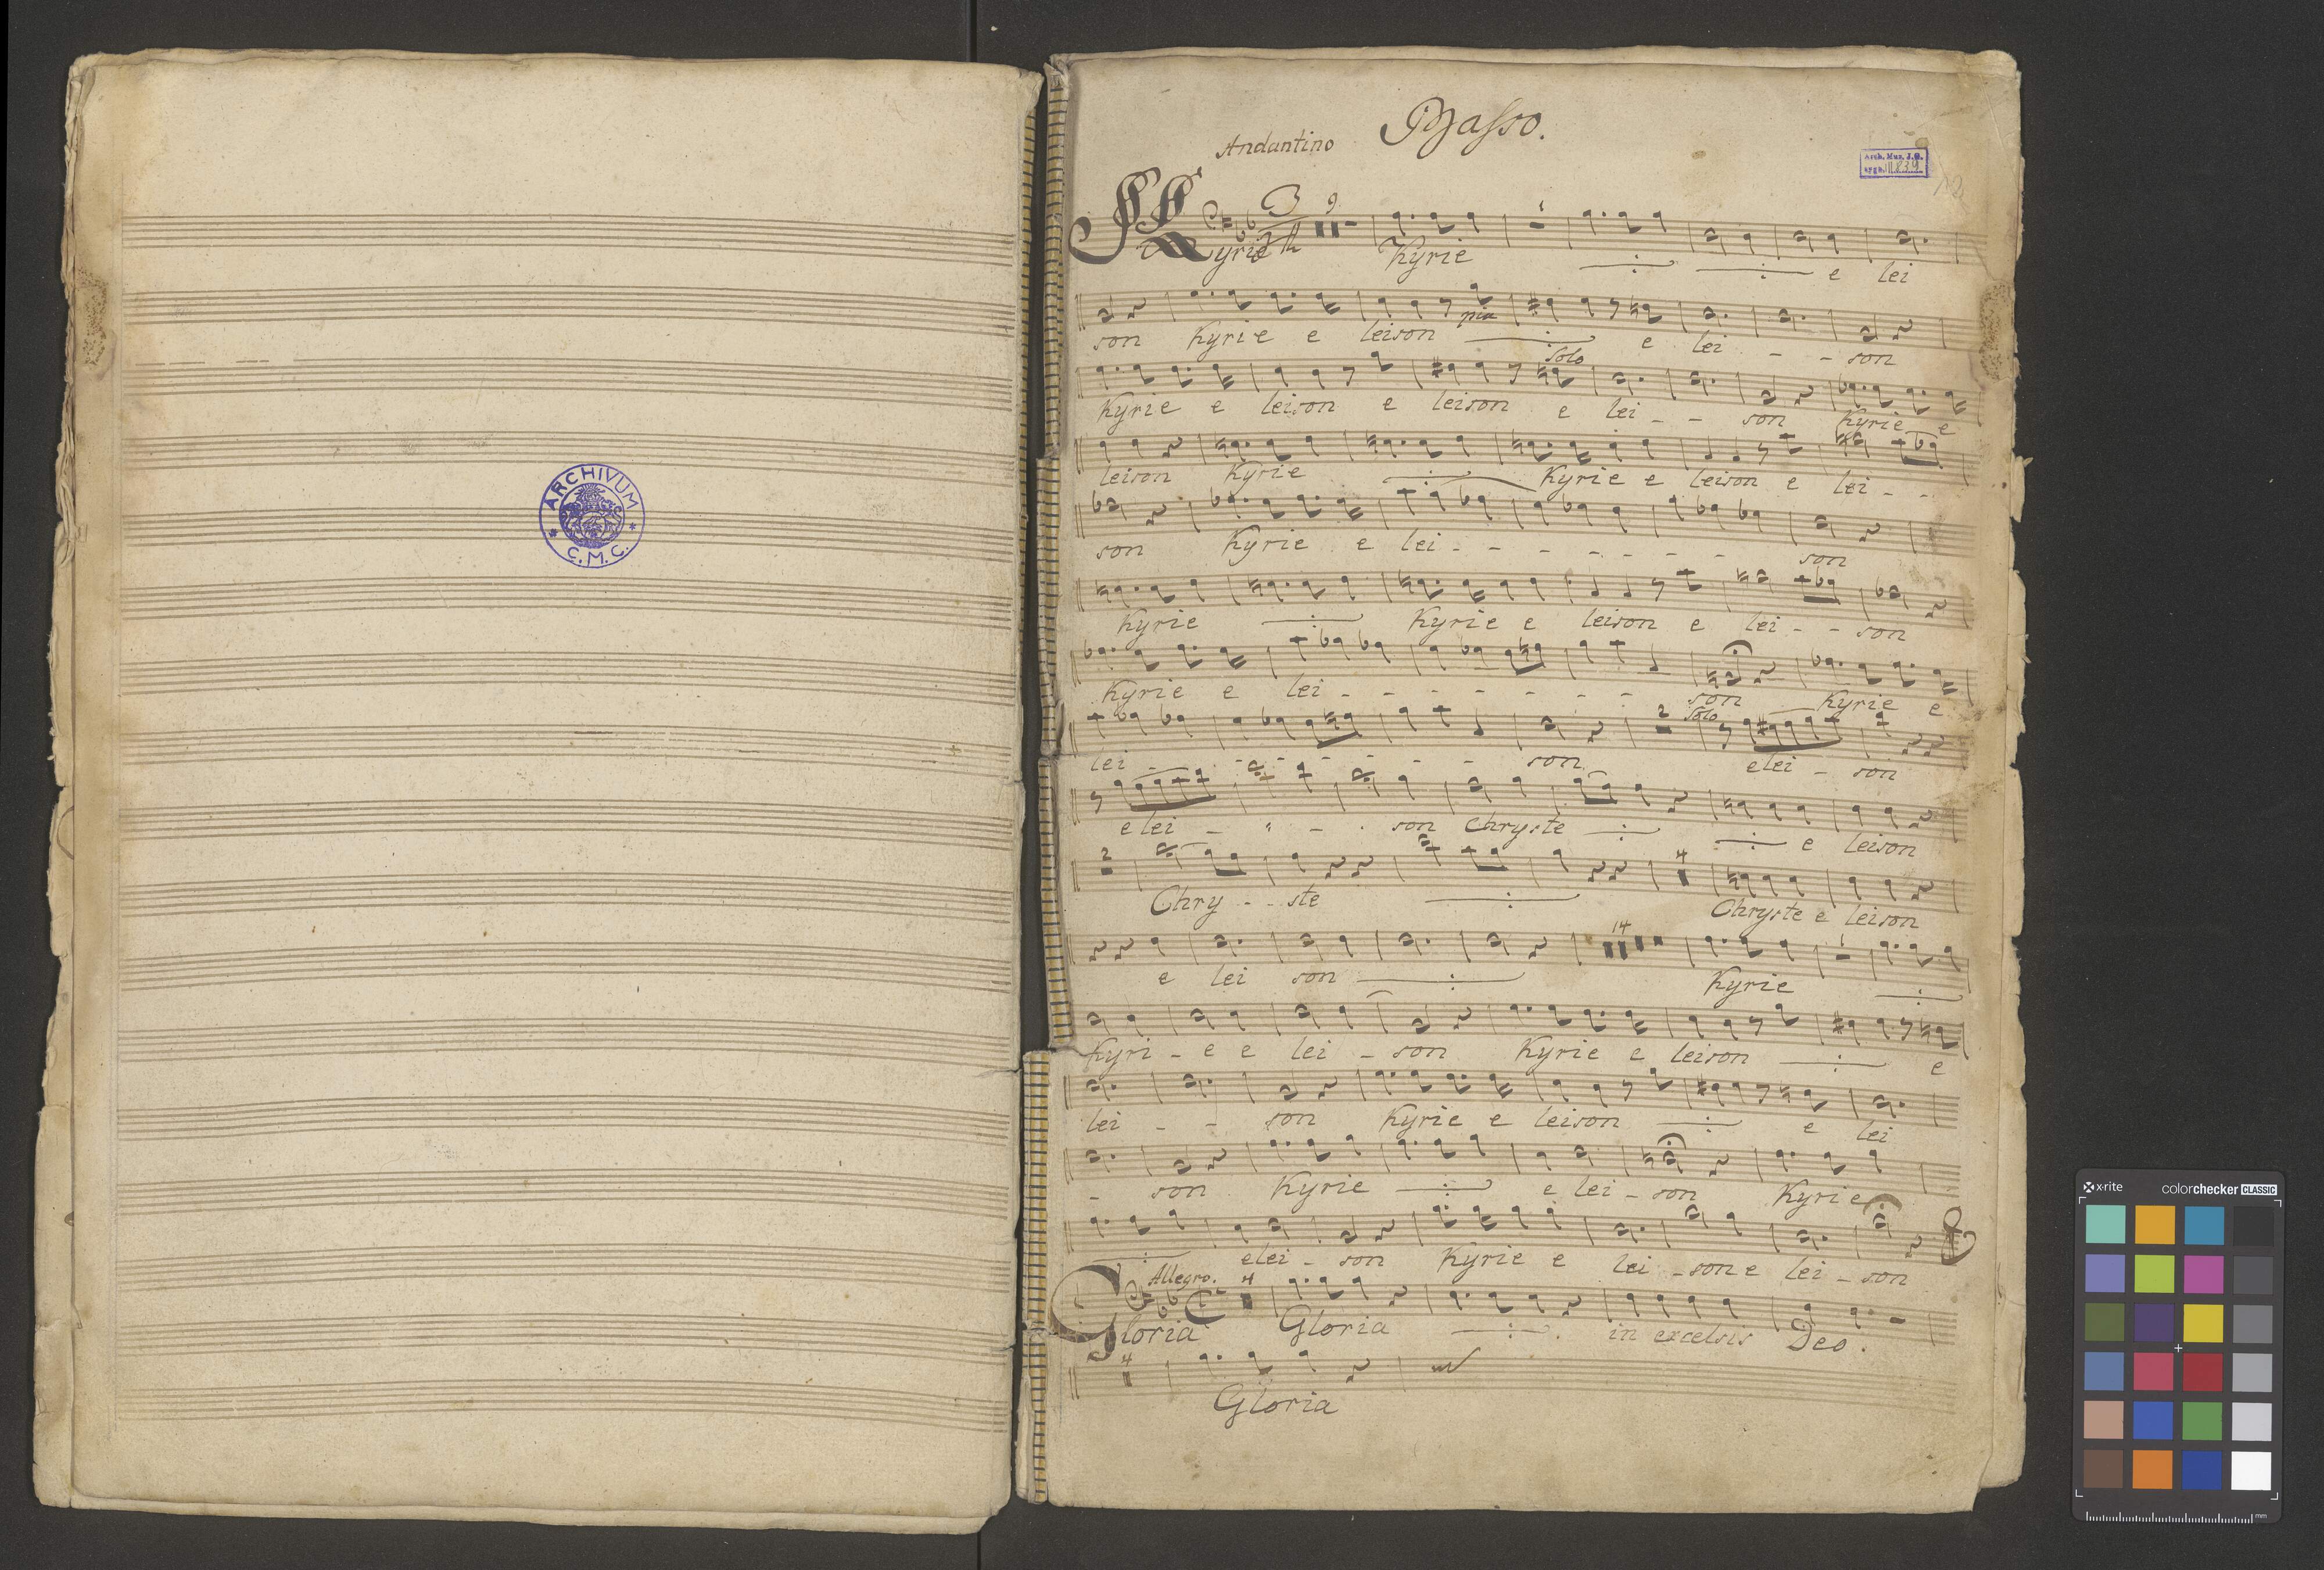 ARCHIVUM
C.M.C.
Basso.
Andantino
Arch. Muz. J.G.
sygn. III 839
12
3 9
Kyrie Kyrie e lei
son Kyrie e leison pia e lei - - son
Solo
Kyrie e leison e leison e lei - - son Kyrie e
leison Kyrie Kyrie e leison e lei - -
son Kyrie e lei - - - - - - - son
Kyrie Kyrie e leison e lei - - son
Kyrie e lei - - - - - - - - son Kyrie e
2 Solo
lei - - - - - - - son elei - son
elei - - - son Chryste e leison
2 4
Chry - - ste Chryste e leison
14
e lei son Kyrie
Kyri - e e lei - son Kyrie e leison e
lei - - son Kyrie e leison e lei
- son Kyrie e lei - son Kyrie
elei - son Kyrie e lei - son e lei - son
Allegro. 4
Gloria Gloria in excelsis Deo.
4
Gloria
x-rite colorchecker CLASSIC
mm